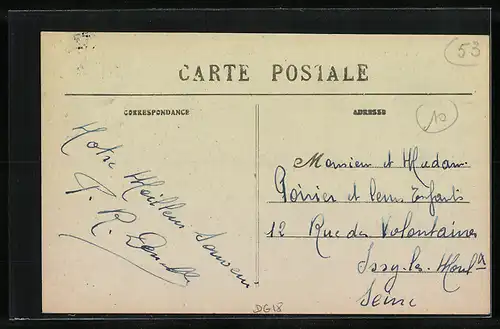 53
CARTE POSTALE
CORRESPONDANCE
ADRESSE
10
Notre Meilleur Souvenir
P. R.
Monsieur et Madame
Poirier et leurs Enfants
12 Rue des Volontaires
Issy-les-Moulx
Seine
DG18